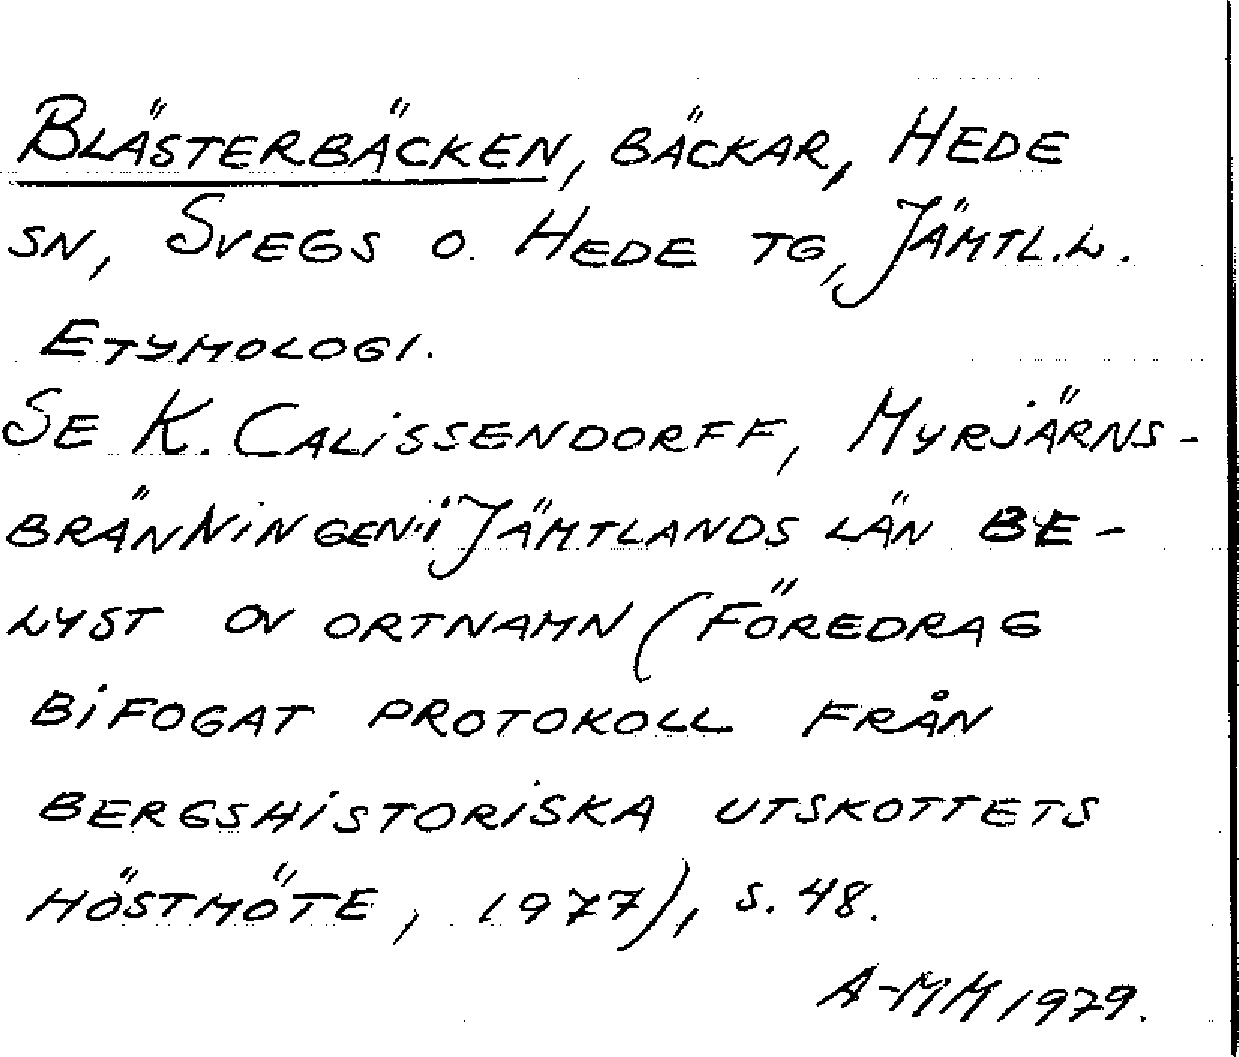 BLÄSTERBÄCKEN, BÄCKAR, HEDE
SN, SVEGS O. HEDE TG, JÄMTL.L.
ETYMOLOGI.
SE K. CALiSSENDORFF, MYRJÄRNS-
BRÄNNiNGEN i JÄMTLANDS LÄN BE-
LYST AV ORTNAMN (FÖREDRAG
BiFOGAT PROTOKOLL FRÅN
BERGSHiSTORiSKA UTSKOTTETS
HÖSTMÖTE, 1977), S. 48.
A-MM 1979.